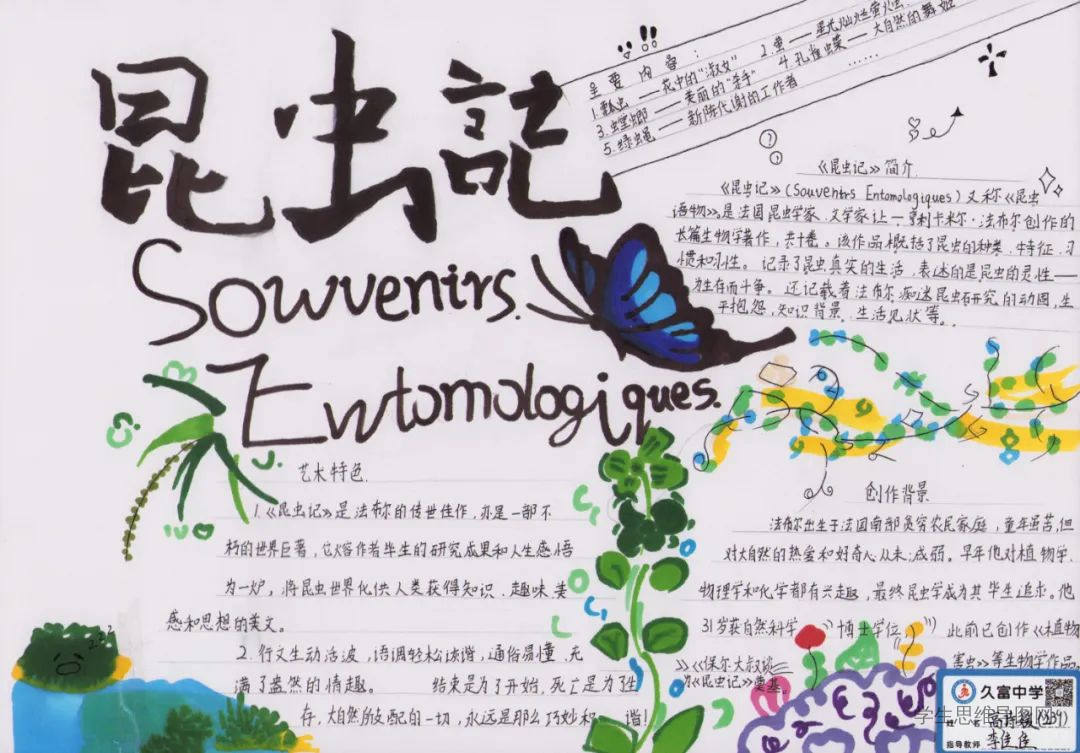 昆虫記
Souvenirs.
Entomologiques.
主要内容:
1.瓢虫——花中的“淑女” 2.萤——星光灿烂萤火虫
3.螳螂——美丽的“杀手” 4.孔雀蝶——大自然的舞姬
5.绿蝇——新陈代谢的工作者 ……
《昆虫记》简介
《昆虫记》(Souvenirs Entomologiques)又称《昆虫
语物》。是法国昆虫学家、文学家让-亨利卡米尔·法布尔创作的
长篇生物学著作,共十卷。该作品概括了昆虫的种类、特征、习
惯和习性。记录了昆虫真实的生活,表述的是昆虫的灵性——
为生存而斗争。还记载着法布尔痴迷昆虫研究的动因,生
平抱怨,知识背景、生活见状等。
艺术特色
1.《昆虫记》是法布尔的传世佳作,亦是一部不
朽的世界巨著,它熔作者毕生的研究成果和人生感悟
为一炉,将昆虫世界化供人类获得知识、趣味、美
感和思想的美文。
2.行文生动活波,语调轻松诙谐,通俗易懂,充
满了盎然的情趣。 结束是为了开始,死亡是为了生
存,大自然所支配的一切,永远是那么巧妙和 谐!
创作背景
法布尔出生于法国南部贫穷农民家庭,童年虽苦,但
对大自然的热爱和好奇心从未减弱。早年他对植物学、
物理学和化学都有兴趣,最终昆虫学成为其毕生追求。他
31岁获自然科学 博士学位 此前已创作《植物》
》《保尔大叔谈 害虫》等生物学作品,
为《昆虫记》奠基。
久富中学
姓名
指导教师
学生思维导图网